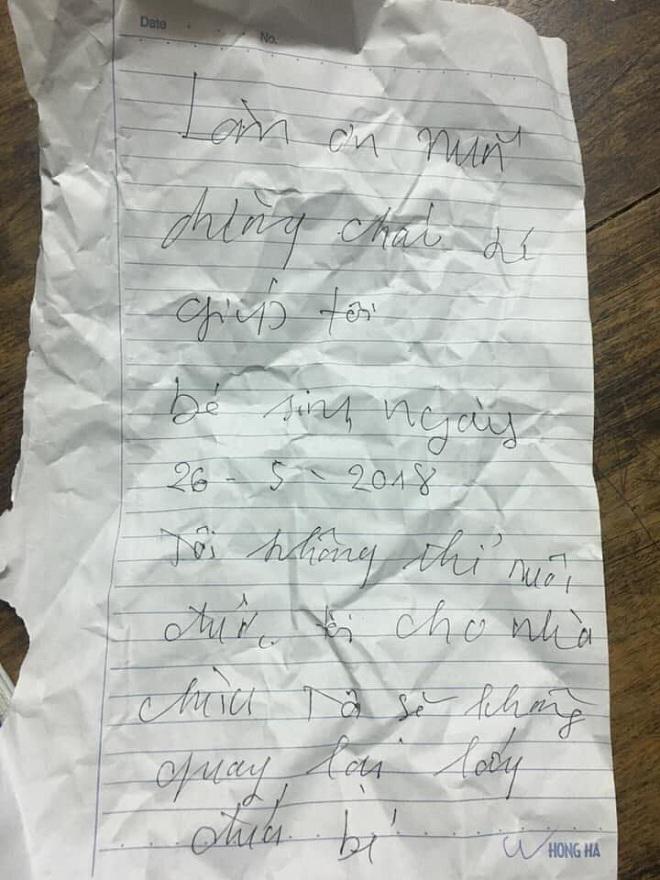 Date No.
Làm ơn nuôi
dưỡng cháu bé
giúp tôi
bé sinh ngày
26-5-2018
Tôi không thể nuôi
được tôi cho nhà
chùa Tôi sẽ không
quay lại lấy
đứa bé
HONG HA